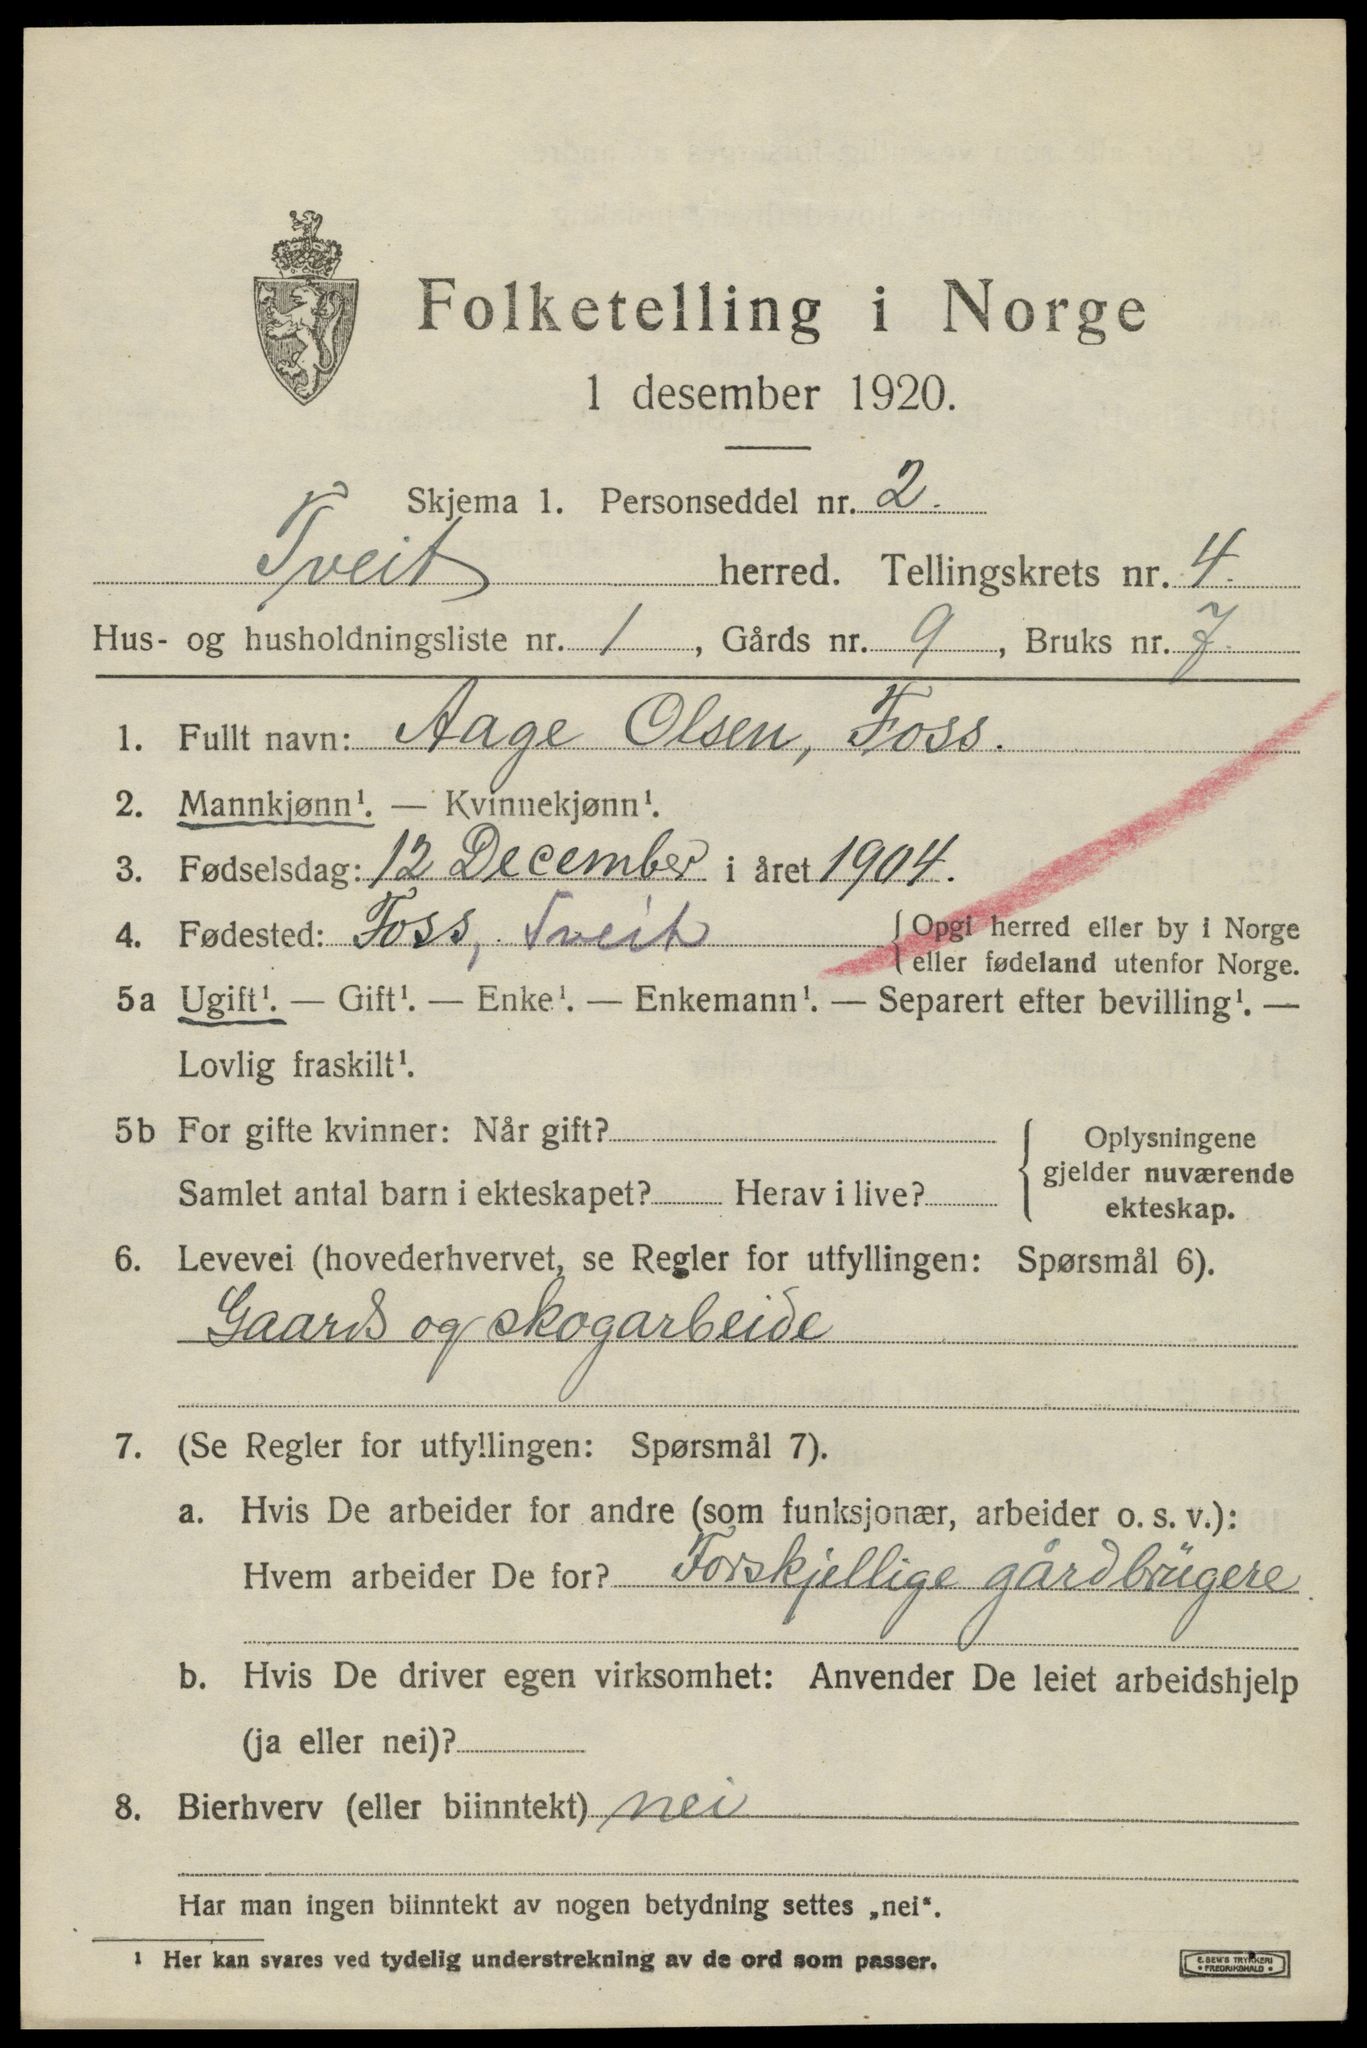 Folketelling i Norge
1 desember 1920.
Skjema 1. Personseddel nr. 2.
Tveit herred. Tellingskrets nr. 4.
Hus- og husholdningsliste nr. 1, Gårds nr. 9, Bruks nr. 7.
1. Fullt navn: Aage Olsen, Foss.
2. Mannkjønn¹. — Kvinnekjønn¹.
3. Fødselsdag: 12 December i året 1904.
4. Fødested: Foss, Tveit { Opgi herred eller by i Norge
eller fødeland utenfor Norge.
5a Ugift¹. — Gift¹. — Enke¹. — Enkemann¹. — Separert efter bevilling¹. —
Lovlig fraskilt¹.
5b For gifte kvinner: Når gift?
Samlet antal barn i ekteskapet? Herav i live?
{ Oplysningene
gjelder nuværende
ekteskap.
6. Levevei (hovederhvervet, se Regler for utfyllingen: Spørsmål 6).
Gaards og skogarbeide
7. (Se Regler for utfyllingen: Spørsmål 7).
a. Hvis De arbeider for andre (som funksjonær, arbeider o. s. v.):
Hvem arbeider De for? Forskjellige gårdbrügere
b. Hvis De driver egen virksomhet: Anvender De leiet arbeidshjelp
(ja eller nei)?
8. Bierhverv (eller biinntekt) nei
Har man ingen biinntekt av nogen betydning settes „nei“.
¹ Her kan svares ved tydelig understrekning av de ord som passer.
E. SEM'S TRYKKERI
• FREDRIKSHALD •